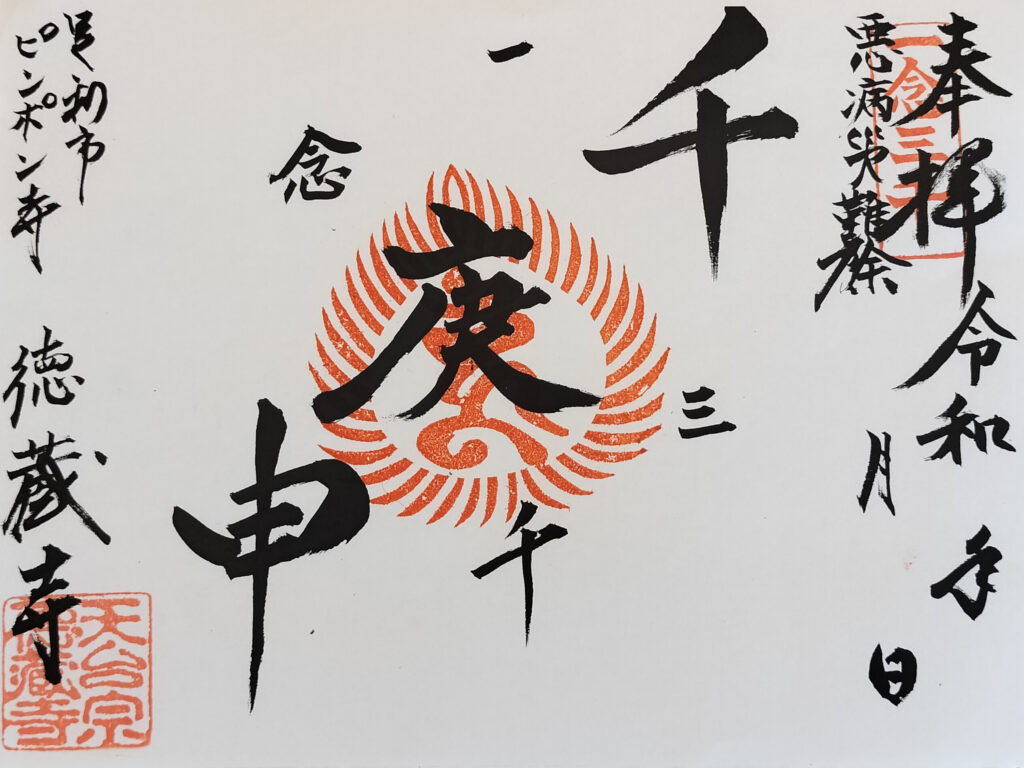 奉拝 令和 年
月 日
悪病災難除
一念三千
千
庚
申
一
念
三
千
足利市
ピンポン寺
徳蔵寺
天台宗
徳蔵寺